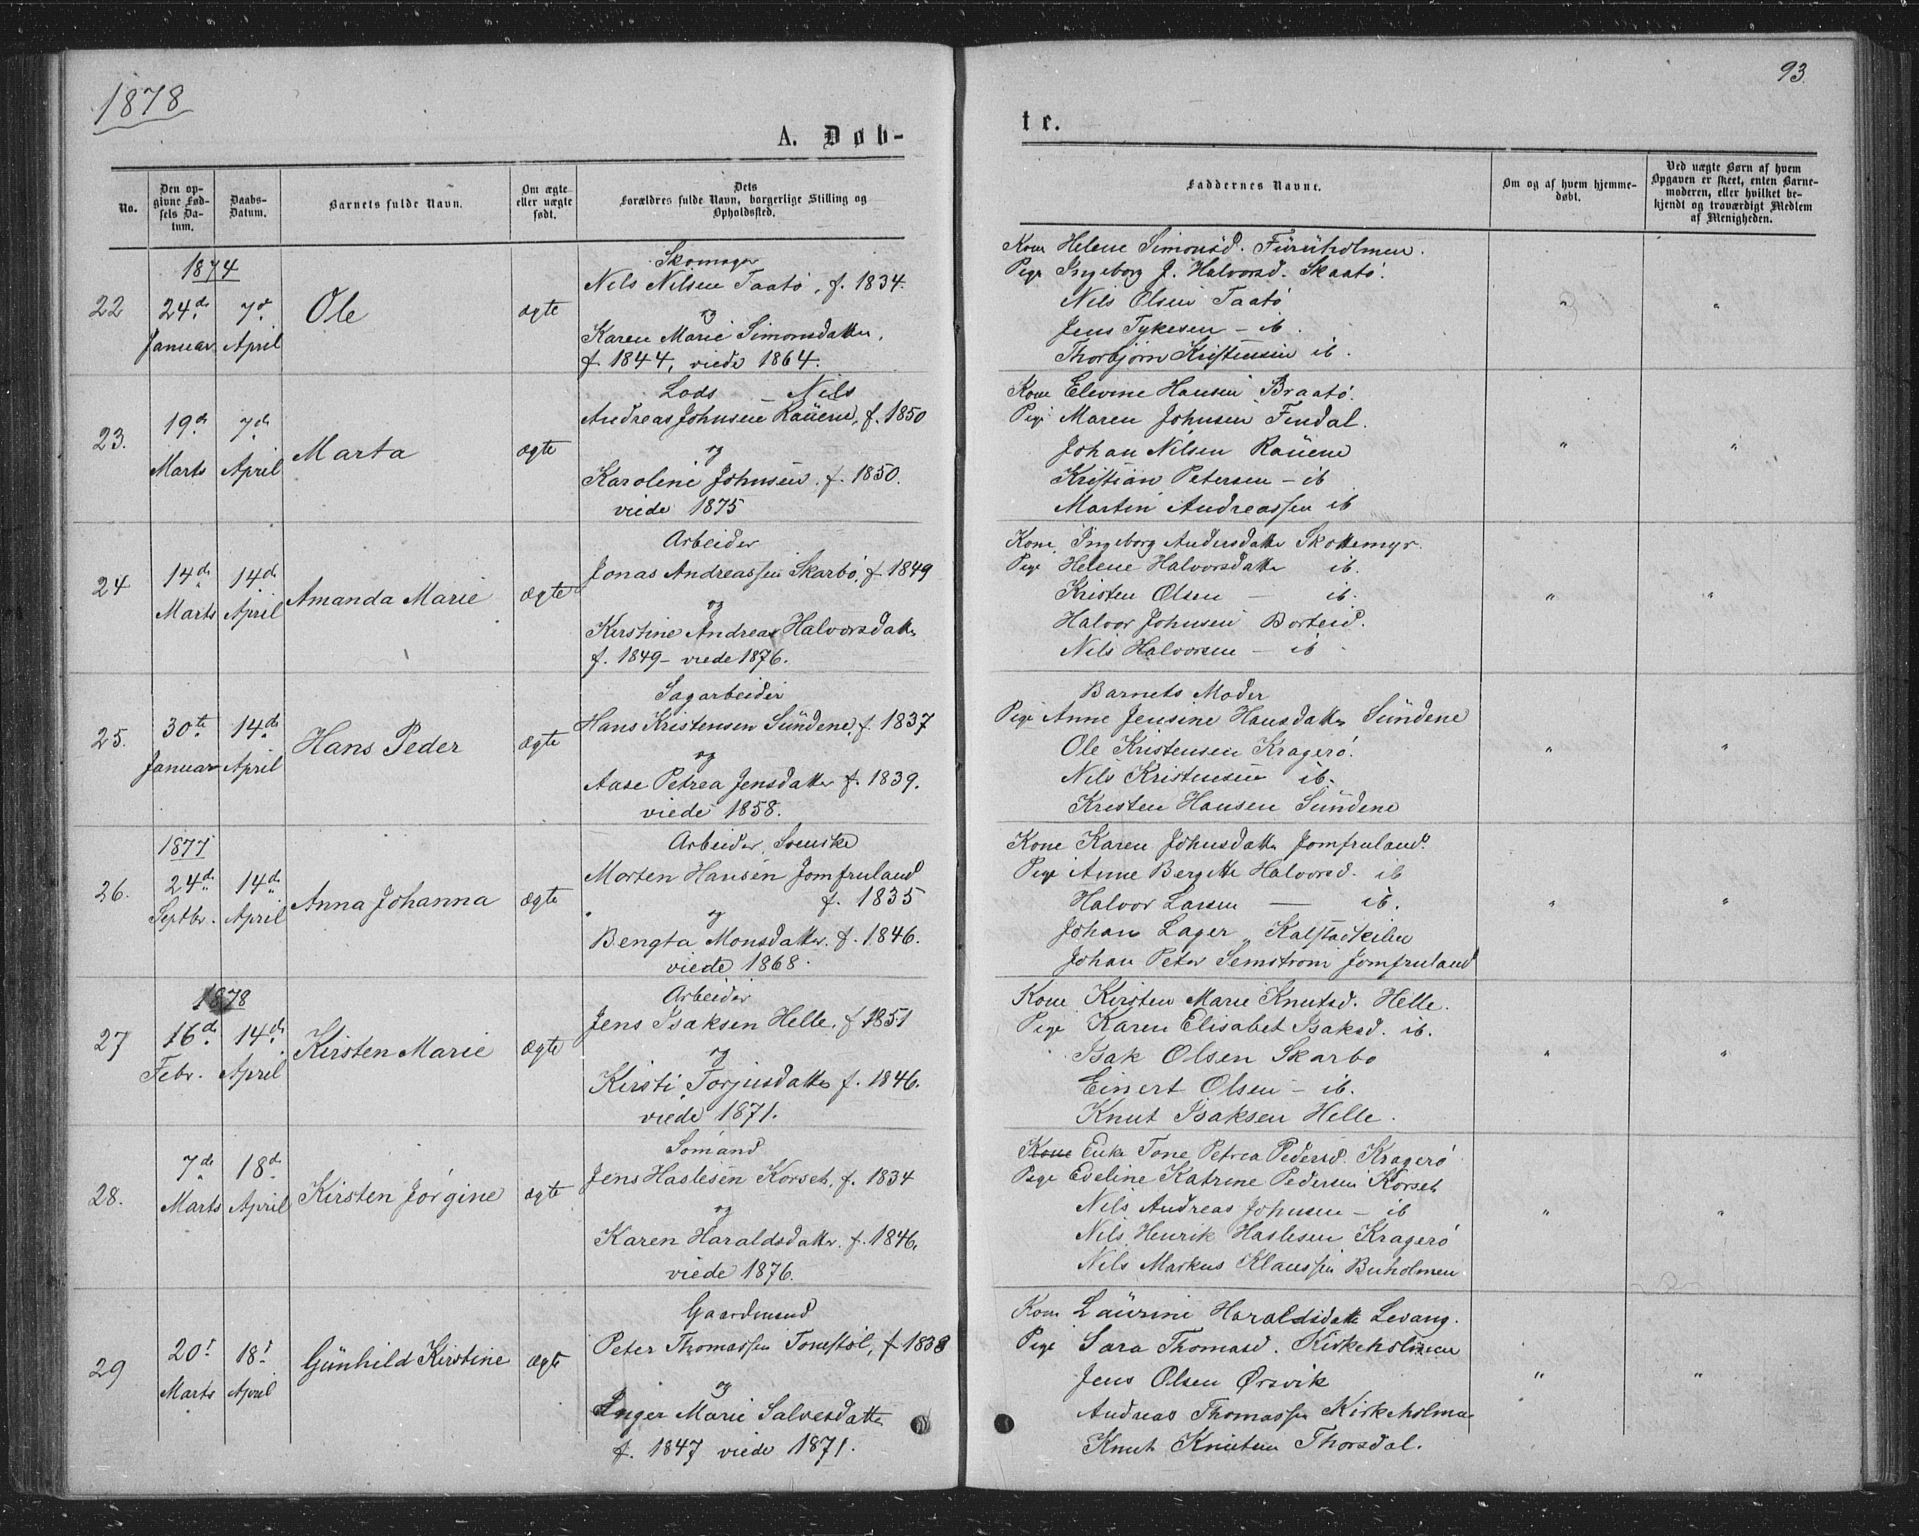 1878
93.
A. Døb-
te.
No.
Den op-
givne Fød-
sels Da-
tum.
Daabs-
Datum.
Barnets fulde Navn.
Om ægte
eller uægte
født.
Dets
Forældres fulde Navn, borgerlige Stilling og
Opholdssted.
Faddernes Navne.
Om og af hvem hjemme-
døbt.
Ved uægte Børn af hvem
Opgaven er skeet, enten Barne-
moderen, eller hvilket be-
kjendt og troværdigt Medlem
af Menigheden.
1874
22
24de
Januar
7de
April
Ole
ægte
Skomager
Nils Nilsen Taatø, f. 1834.
og
Karen Marie Simonsdatter,
f. 1844, viede 1864.
Kone Helene Simonsd. Furuholmen.
Pige Ingeborg J. Halvorsd. Skaatø.
Nils Olsen Taatø
Jens Tykesen – ib.
Thorbjørn Kristensen ib.
" "
23.
19de
Marts
7de
April
Marta
ægte
Lods – Nils
Andreas Johnsen Rauene, f. 1850
og
Karoline Johnsen. f. 1850.
viede 1875
Kone Elevine Hansen Braatø.
Pige Maren Johnsen Findal.
Johan Nilsen Rauene
Kristian Petersen – ib
Martin Andreassen ib
" "
24
14de
Marts
14de
April
Amanda Marie
ægte
Arbeider
Jonas Andreassen Skarbo, f. 1849
og
Kirstine Andrea Halvorsdatter
f. 1849 – viede 1876.
Kone, Ingeborg Andersdatter Skottemyr.
Pige Helene Halvorsdatter ib.
Kristen Olsen – ib.
Halvor Johnsen Borteid.
Nils Halvorsen – ib
" "
25.
30te
Januar
14de
April
Hans Peder
ægte
Sagarbeider
Hans Kristensen Sundene, f. 1837
og
Aase Petrea Jensdatter f. 1839.
viede 1858.
Barnets Moder
Pige Anne Jensine Hansdatter Sundene
Ole Kristensen Kragerø.
Nils Kristensen ib.
Kristen Hansen Sundene
" "
1877
26.
24de
Septbr.
14de
April
Anna Johanna
ægte
Arbeider, Svenske
Morten Hansen Jomfruland
f. 1835
og
Bengta Monsdatter. f. 1846.
viede 1868.
Kone Karen Johnsdatter Jomfruland.
Pige Anne Bergitte Halvorsd. ib
Halvor Larsen – ib.
Johan Lager, Kalstadkilen
Johan Peter Semstrom Jomfruland
" "
1878
27
16de
Febr.
14de
April
Kirsten Marie
ægte
Arbeider
Jens Isaksen Helle, f. 1851
og
Kirsti Torjusdatter f. 1846.
viede 1871.
Kone Kirsten Marie Knutsd. Helle.
Pige Karen Elisabet Isaksd. ib.
Isak Olsen Skarbo
Einert Olsen – ib.
Knut Isaksen Helle.
" "
28.
7de
Marts
18de
April
Kirsten Jørgine
ægte
Sømand
Jens Haslesen Korset, f. 1834
og
Karen Haraldsdatter. f. 1846.
viede 1876.
Kone Enke Tone Petrea Pedersd. Kragerø
Pige Eveline Katrine Pedersen Korset
Nils Andreas Johnsen – ib
Nils Henrik Haslesen Kragerø
Nils Markus Klaussen Buholmen.
" "
29
20de
Marts
18de
April
Gunhild Kirstine
ægte
Gaardmand
Peter Thomassen Tonestøl, f. 1838
og
Inger Marie Salvesdatter
f. 1847 viede 1871.
Kone Laurine Haraldsdatter Levang.
Pige Sara Thomasd. Kirkeholmen
Jens Olsen Ørsvik
Andreas Thomassen Kirkeholmen
Knut Knutsen Thorsdal.
" "